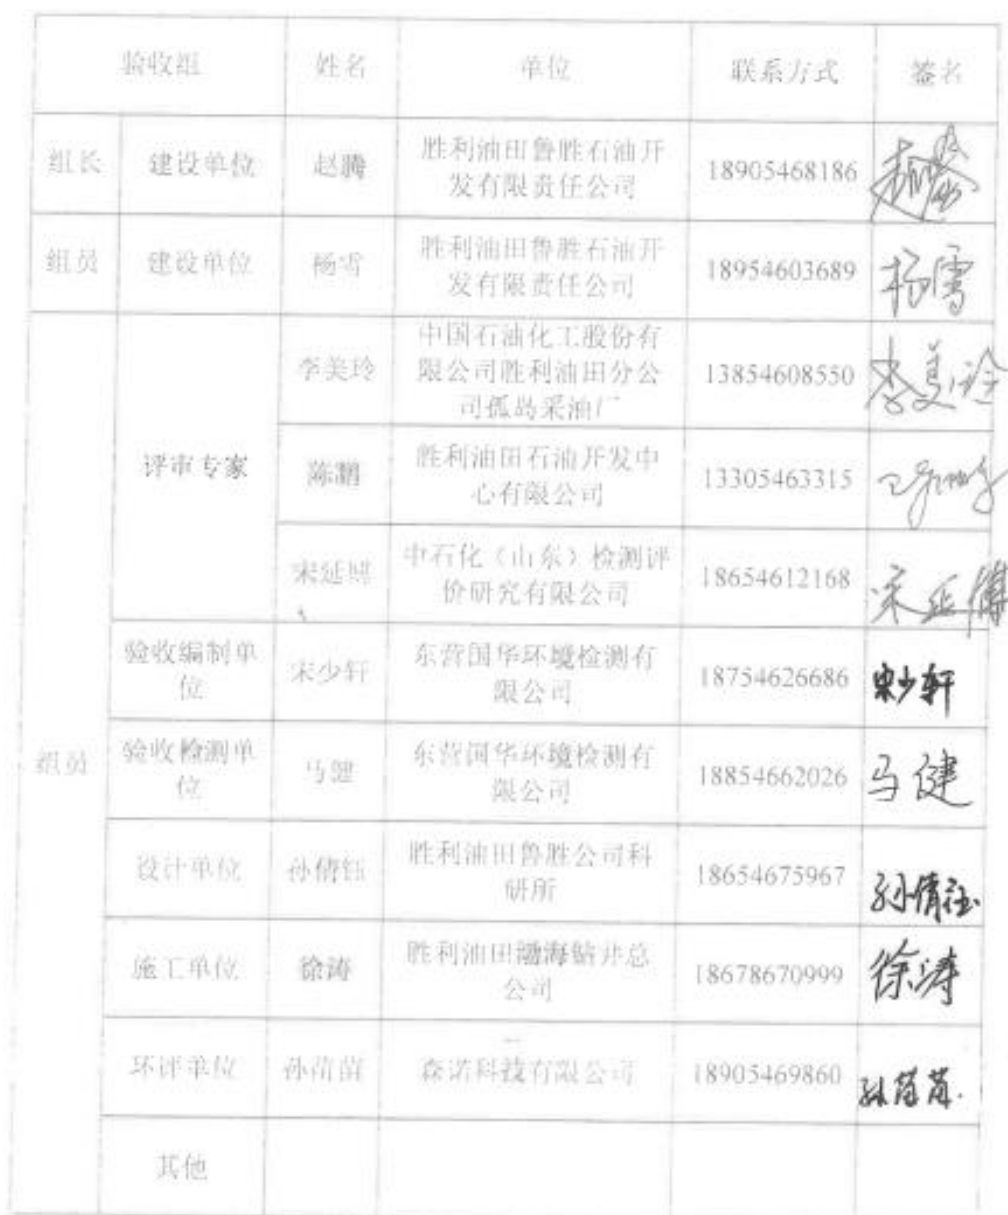 验收组 姓名 单位 联系方式 签名
组长 建设单位 赵腾 胜利油田鲁胜石油开
发有限责任公司 18905468186
组员 建设单位 杨雪 胜利油田鲁胜石油开
发有限责任公司 18954603689 杨雪
组员
评审专家
李美玲 中国石油化工股份有
限公司胜利油田分公
司孤岛采油厂 13854608550 李美玲
陈鹏 胜利油田石油开发中
心有限公司 13305463315
宋延 中石化（山东）检测评
价研究有限公司 18654612168 宋延博
验收编制单
位 宋少轩 东营国华环境检测有
限公司 18754626686 宋少轩
验收检测单
位 马健 东营国华环境检测有
限公司 18854662026 马健
设计单位 孙倩钰 胜利油田鲁胜公司科
研所 18654675967 孙倩钰
施工单位 徐涛 胜利油田渤海钻井总
公司 18678670999 徐涛
环评单位 孙苗苗 森诺科技有限公司 18905469860 孙苗苗.
其他